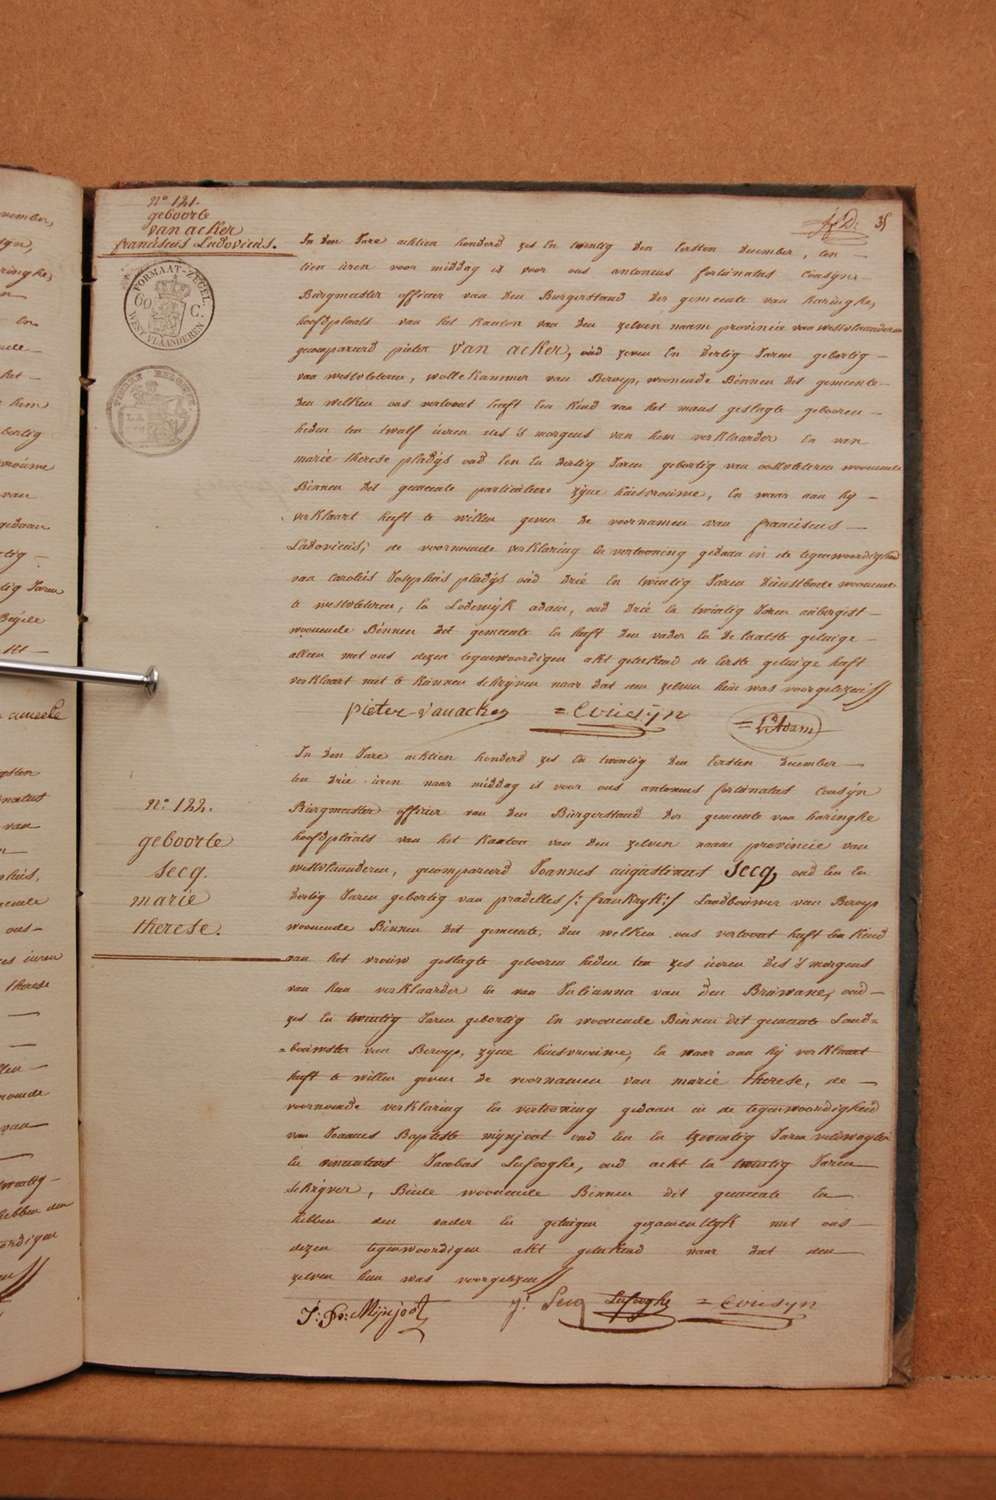 n.° 121.
geboorte
van acker
franciscus Ludovicus.
35
FORMAAT-ZEGEL.
60 C:
WEST-VLAANDEREN
In den Jare achtien honderd zes en twintig den Eersten december, ten
tien uren voor middag is voor ons antonius fortunatus Cousyn
Burgmeester officier van den Burgerstand der gemeente van haringhe,
hoofdplaets van het kanton van den zelven naam provincie van westvlaanderen
gecompareerd pieter van acker, oud zeven en dertig Jaren geboortig
van westvleteren, wollekammer van Beroep, woonende Binnen dit gemeente
den welken ons vertoont heeft een kind van het mans geslagte gebooren
heden ten twalf uren des 's morgens van hem verklaarder en van
marie therese pladys oud een en dertig Jaren geboortig van oostvleteren woonende
Binnen dit gemeente particuliere zyne huisvrouwe, en waar aan hy
verklaart heeft te willen geven de voornamen van franciscus
Ludovicus; de voornoemde verklaring en vertooning gedaan in de tegenwoordigheid
van carolus Josephus pladys oud drie en twintig Jaren dienstbode woonende
te westvleteren, en Lodewyk adam, oud drie en twintig Jaren aubergist
woonende Binnen dit gemeente en heeft den vader en de laatste getuige
alleen met ons dezen tegenwoordigen akt geteekend de Eerste getuige heeft
verklaart niet te kunnen schryven naar dat een zelven hem was voorgelezen
pieter vanacker = Cousyn = L. Adam
n.° 122.
geboorte
Secq.
marie
therese.
In den Jare achtien honderd zes en twintig den Eersten december
ten drie uren naar middag is voor ons antonius fortunatus Cousyn
Burgmeester officier van den Burgerstand der gemeente van haringhe
hoofdplaats van het kanton van den zelven naam provincie van
westvlaanderen, gecompareerd Joannes augustinus Secq, oud een en
dertig Jaren geboortig van pradelles /: frankryk :/ Landbouwer van Beroep
woonende Binnen dit gemeente, den welken ons vertoont heeft een kind
van het vrouw geslagte gebooren heden ten zes uren des 's morgens
van hem verklaarder en van Julianna van den Bruwane, oud
zes en twintig Jaren geboortig en woonende Binnen dit gemeente Land=
=bouwster van Beroep, zyne huisvrouwe, en waar aan hy verklaart
heeft te willen geven de voornamen van marie therese, de
voornoemde verklaring en vertooning gedaan in de tegenwoordigheid
van Joannes Baptiste mynjoot oud een en tzeventig Jaren veldwagter
en Jacobus Lafooghe, oud acht en twintig Jaren
schryver, Beide woonende Binnen dit gemeente en
hebben den vader en getuigen gezamentlyk met ons
dezen tegenwoordigen akt geteekend naar dat den
zelven hun was voorgelezen
J: B: Mynjoot J: Secq Lafooghe = Cousyn